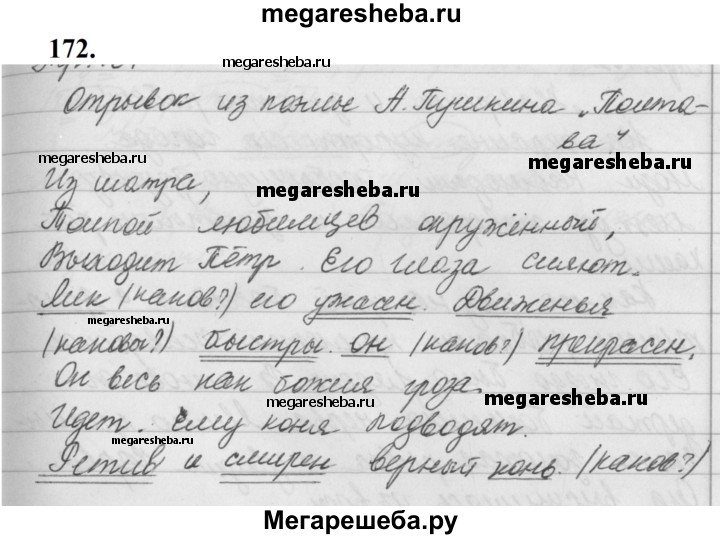 megaresheba.ru
172.
megaresheba.ru
Отрывок из поэмы А. Пушкина „Полта-
ва"
megaresheba.ru
megaresheba.ru
Из шатра,
megaresheba.ru
Толпой любимцев окружённый,
Выходит Пётр. Его глаза сияют.
Лик (каков?) его ужасен. Движенья
megaresheba.ru
(каковы?) быстры. Он (каков?) прекрасен.
Он весь как божия гроза.
megaresheba.ru
megaresheba.ru
Идет. Ему коня подводят.
megaresheba.ru
Ретив и смирен верный конь. (каков?)
Мегарешеба.ру